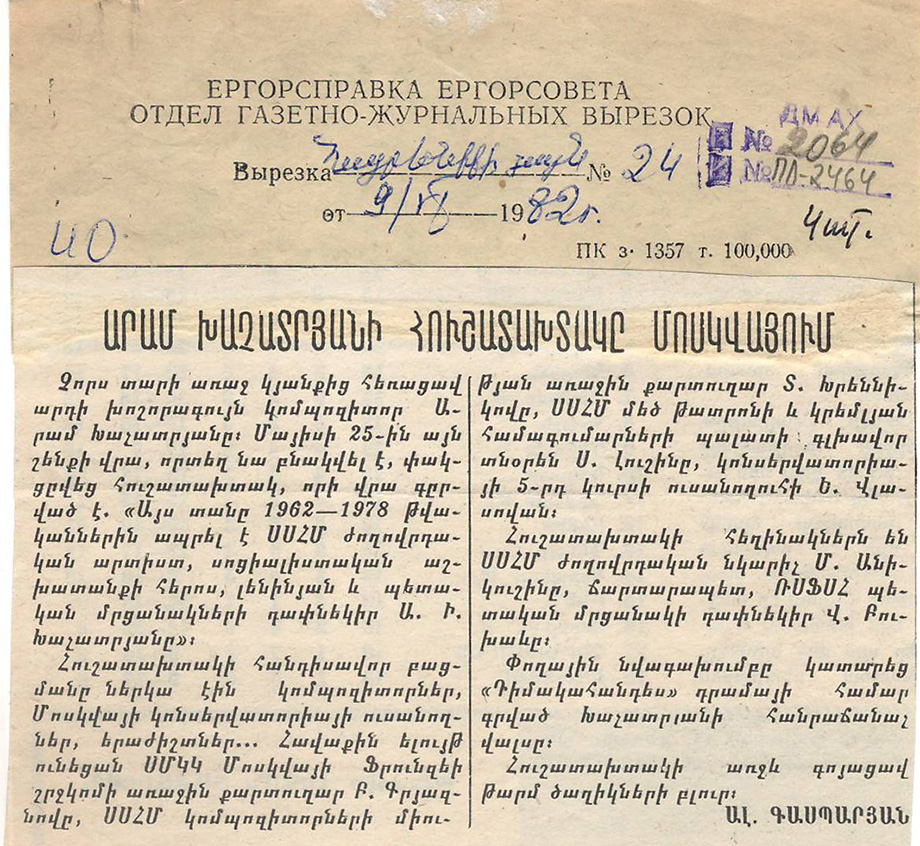 ЕРГОРСПРАВКА ЕРГОРСОВЕТА
ОТДЕЛ ГАЗЕТНО-ЖУРНАЛЬНЫХ ВЫРЕЗОК
ДМАХ
№ 2064
№ ПЛ-2464
Вырезка Հայրենիքի ձայն № 24
от 9/VI 1982г.
40
ПК з. 1357 т. 100,000
ԱՐԱՄ ԽԱՉԱՏՐՅԱՆԻ ՀՈՒՇԱՏԱԽՏԱԿԸ ՄՈՍԿՎԱՅՈՒՄ
Չորս տարի առաջ կյանքից հեռացավ
արդի խոշորագույն կոմպոզիտոր Ա-
րամ Խաչատրյանը։ Մայիսի 25-ին այն
շենքի վրա, որտեղ նա բնակվել է, փակ-
ցըվեց հուշատախտակ, որի վրա գըր-
ված է. «Այս տանը 1962—1978 թվա-
կաններին ապրել է ՍՍՀՄ ժողովրդա-
կան արտիստ, սոցիալիստական աշ-
խատանքի հերոս, լենինյան և պետա-
կան մրցանակների դափնեկիր Ա. Ի.
Խաչատրյանը»։
Հուշատախտակի հանդիսավոր բաց-
մանը ներկա էին կոմպոզիտորներ,
Մոսկվայի կոնսերվատորիայի ուսանող-
ներ, երաժիշտներ... Հավաքին ելույթ
ունեցան ՍՄԿԿ Մոսկվայի Ֆրունզեի
շրջկոմի առաջին քարտուղար Բ. Գրյազ-
նովը, ՍՍՀՄ կոմպոզիտորների միու-
թյան առաջին քարտուղար Տ. Խրեննի-
կովը, ՍՍՀՄ մեծ թատրոնի և կրեմլյան
համագումարների պալատի գլխավոր
տնօրեն Ս. Լուշինը, կոնսերվատորիա-
յի 5-րդ կուրսի ուսանողուհի Ե. Վլա-
սովան։
Հուշատախտակի հեղինակներն են
ՍՍՀՄ ժողովրդական նկարիչ Մ. Անի-
կուշինը, ճարտարապետ, ՌՍՖՍՀ պե-
տական մրցանակի դափնեկիր Վ. Բու-
խաևը։
Փողային նվագախումբը կատարեց
«Դիմակահանդես» դրամայի համար
գրված Խաչատրյանի հանրաճանաչ
վալսը։
Հուշատախտակի առջև գոյացավ
թարմ ծաղիկների բլուր։
ԱԼ. ԳԱՍՊԱՐՅԱՆ